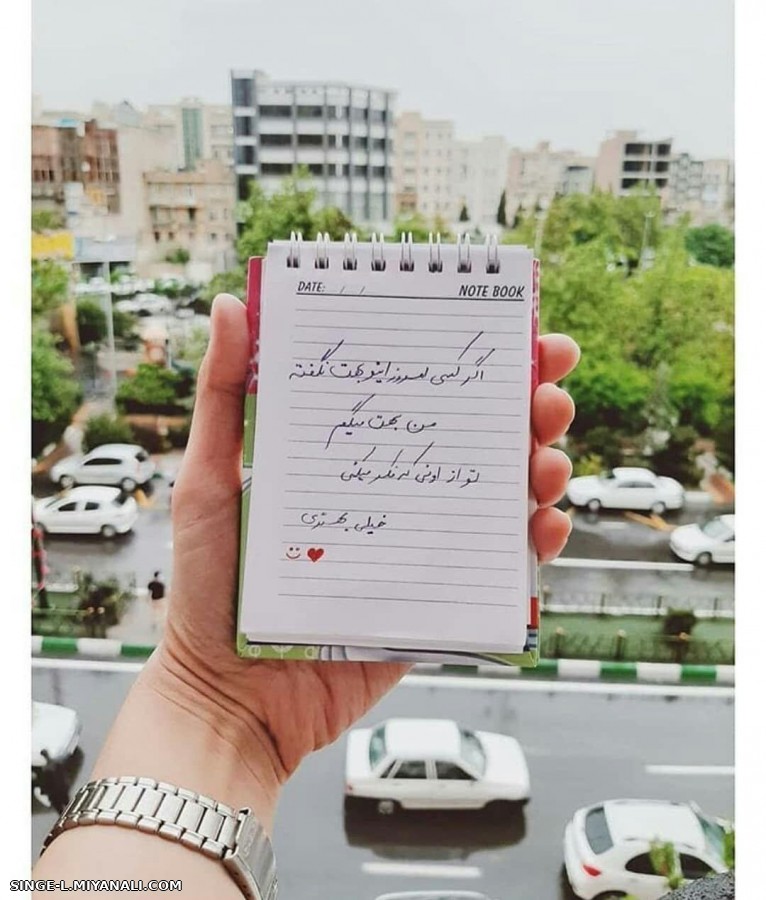 DATE: / /
NOTE BOOK
اگر کسی امروز اینو بهت نگفته
من بهت میگم
تو از اونی که فکر میکنی
خیلی بهتری
☺♥
SINGE-L.MIYANALI.COM